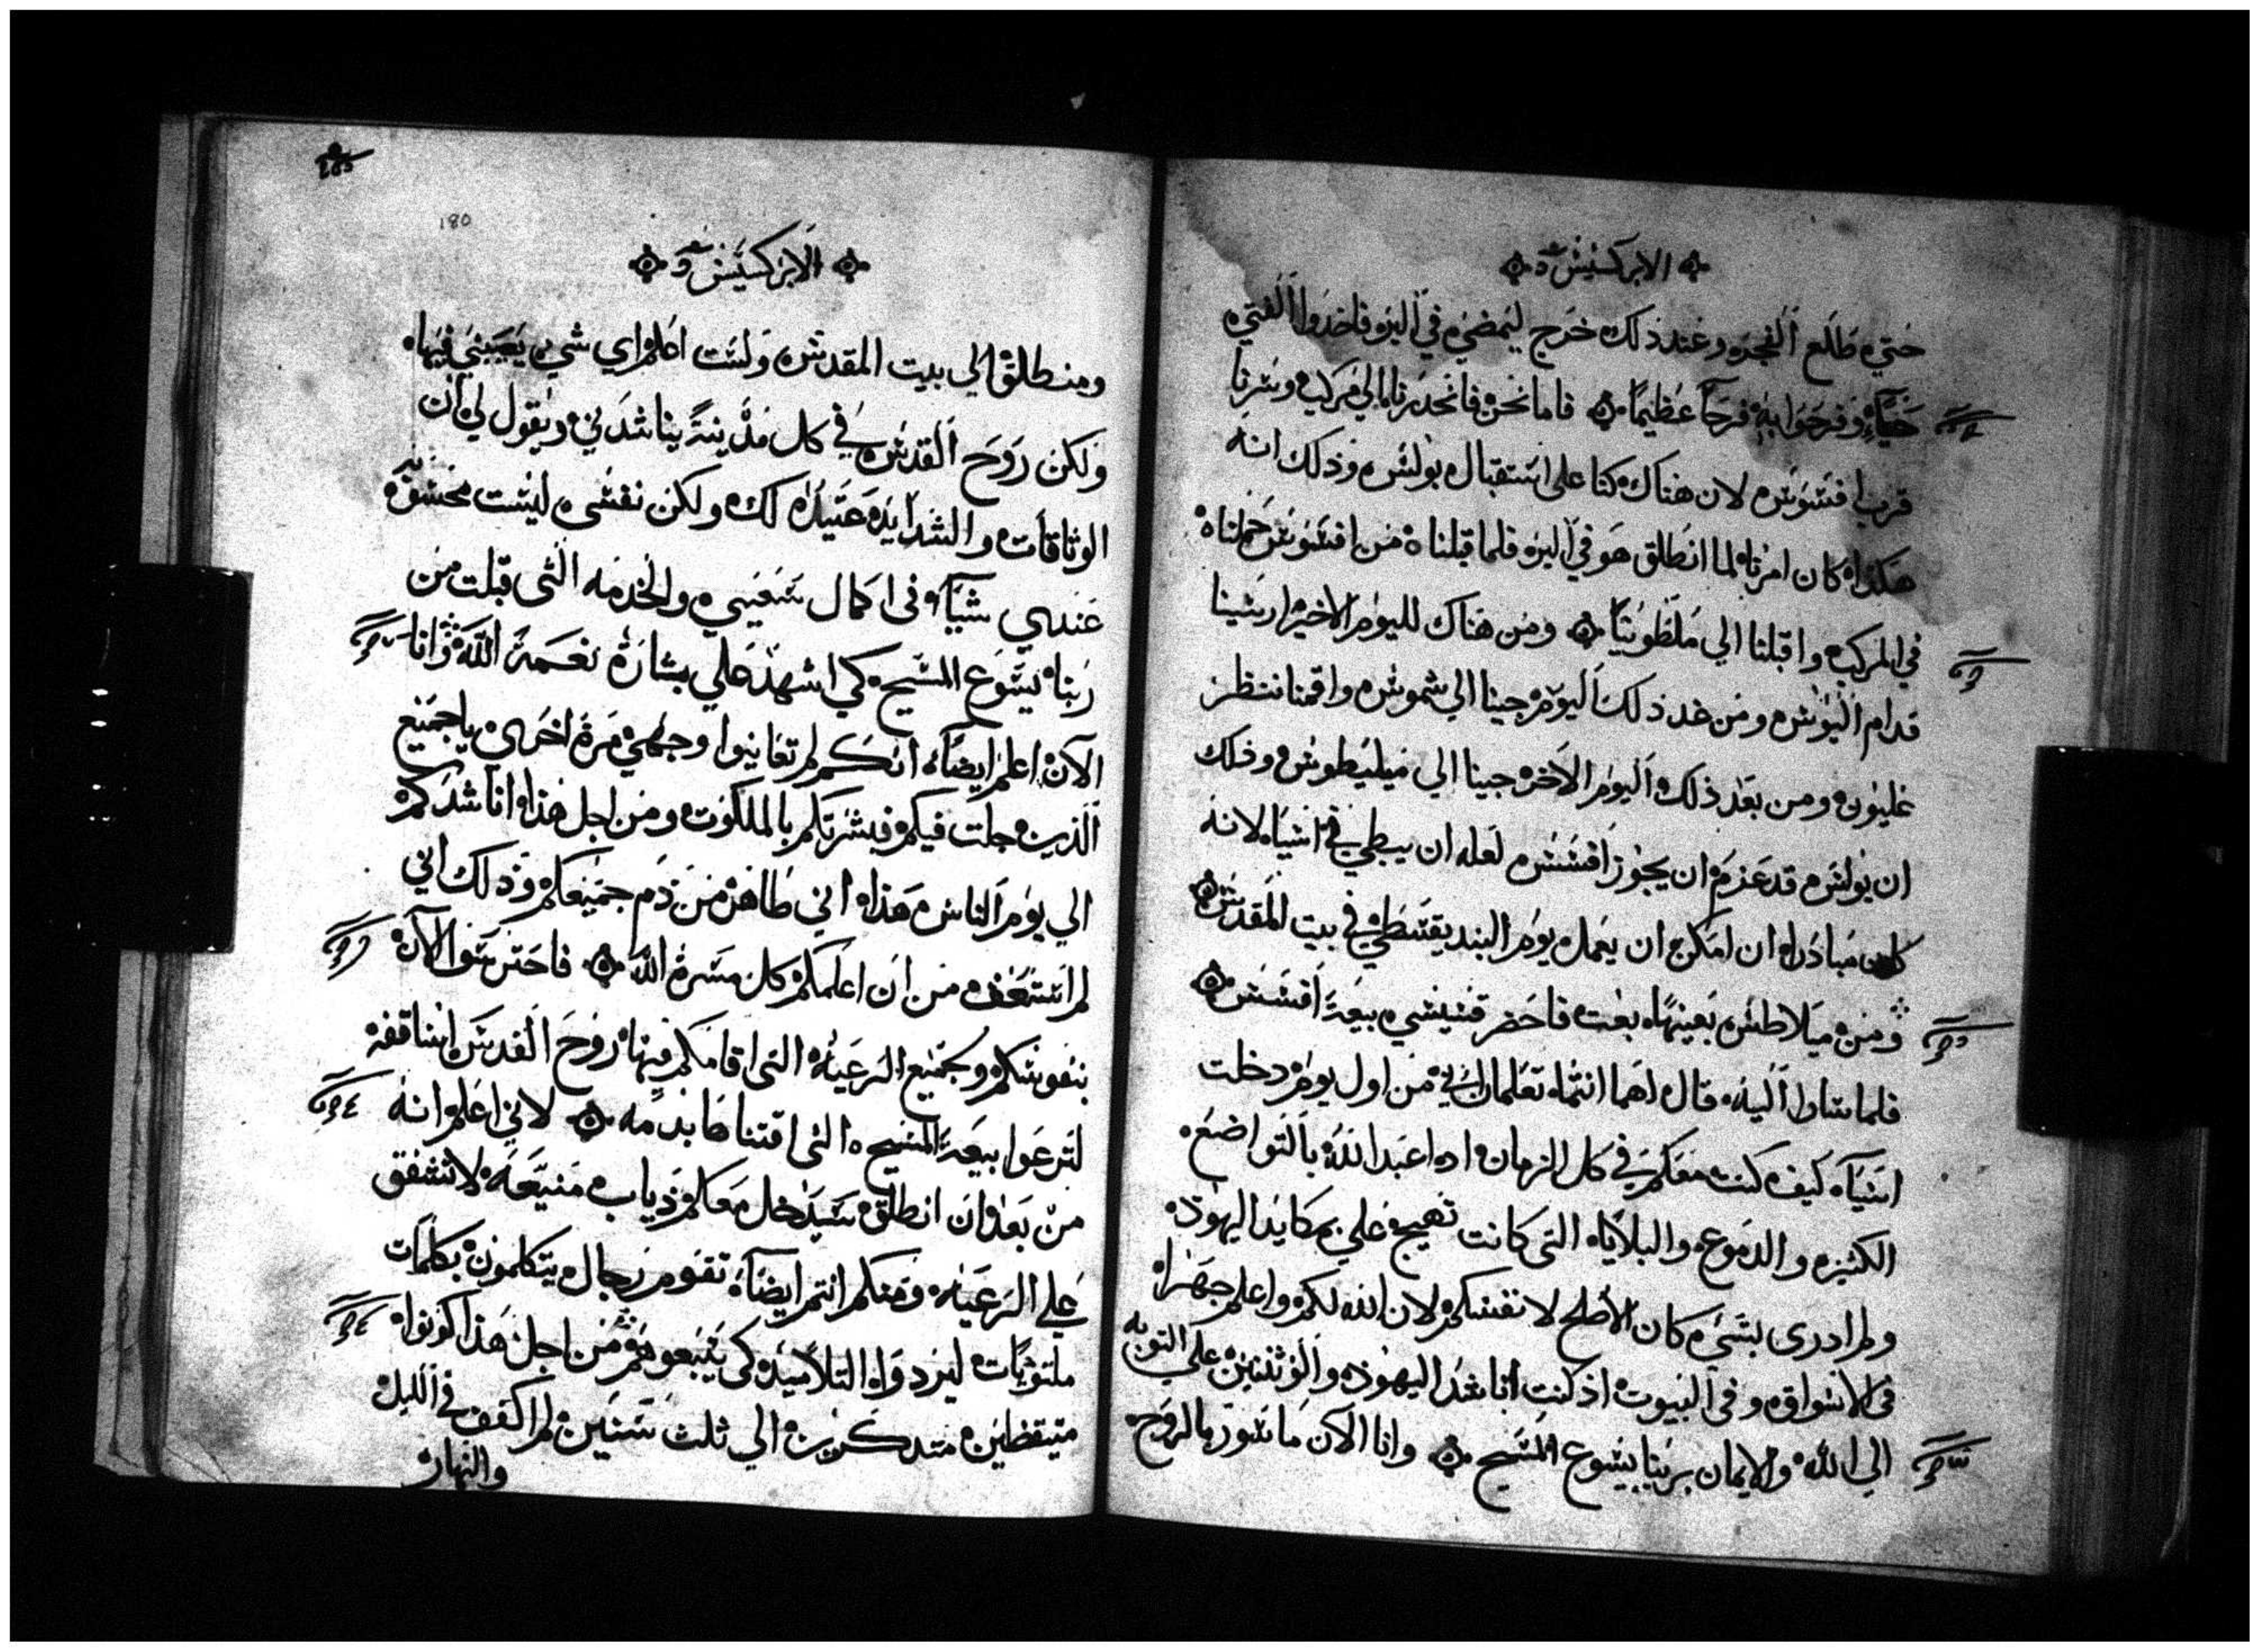 الابركسيس
حتي طلع الفجر وعند ذلك خرج ليمضي في البر فاخذوا الفتي
حياً وفرحوا به فرحاً عظيماً فاما نحن فانحدرنا الي مركب وسرنا
قرب افسوس لان هناك كنا على استقبال بولس وذلك انه
هكذا كان امرنا لما انطلق هو في البر فلما قبلناه من افسوس حملناه
في المركب واقبلنا الي ملطونيا ومن هناك لليوم الاخير ارسينا
قدام اليوس ومن غد ذلك اليوم جينا الي شموس واقمنا ننتظر
غليون ومن بعد ذلك اليوم الاخر جينا الي ميليطوس وذلك
ان بولس قد عزم ان يجوز افسس لعله ان يبطي في اسيا لانه
كان مبادرا ان امكن ان يعمل يوم البنديقسطي في بيت المقدس
ومن ميلاطس بعينها بعث فاحضر قسيسي بيعة افسس
فلما ساوا اليه قال لهما انتما تعلمان اني من اول يوم دخلت
اسيا كيف كنت معكم في كل الزمان اذ اعبد الله بالتواضع
الكثير والدموع والبلايا التى كانت تهيج علي بمكايد اليهود
ولم ادرى بشي كان الاصلح لانفسكم لان انذركم واعلم جهرا
فى الاسواق وفي البيوت اذ كنت اناشد اليهود والوثنيين على التوبه
الي الله والايمان بربنا يسوع المسيح وانا الآن ماسور بالروح
180
الابركسيس
ومنطلق الي بيت المقدس ولست اعلم اي شي يصيبني فيها
ولكن روح القدس في كل مدينة يناشدني ويقول لي ان
الوثاقات والشدايد عتيدة لك ولكن نفسي ليست محسوبة
عندي شيا فى اكمال سعيي والخدمه التى قبلت من
ربنا يسوع المسيح كي اشهد علي بشارة نعمة الله وانا
الآن اعلم ايضاً انكم لم تعاينوا وجهي مرة اخرى ياجميع
الذين جلت فيكم فبشرتكم بالملكوت ومن اجل هذا اناشدكم
الي يوم الناس هذا اني طاهر من دم جميعكم وذلك اني
لم استعف من ان اعلمكم كل مسرة الله فاحترسوا الآن
بنفوسكم وبجميع الرعيه التى اقامكم فيها روح القدس اساقفه
لترعوا بيعة المسيح التى اقتناها بدمه لاني اعلم انه
من بعد ان انطلق سيدخل معكم ذياب منيعه لا تشفق
علي الرعيه ومنكم انتم ايضاً تقوم رجال يتكلمون بكلمات
ملتويات ليردوا التلاميذ كى يتبعوهم من اجل هذا كونوا
متيقظين متذكرين الي ثلث سنين لم اكفف في الليل
والنهار